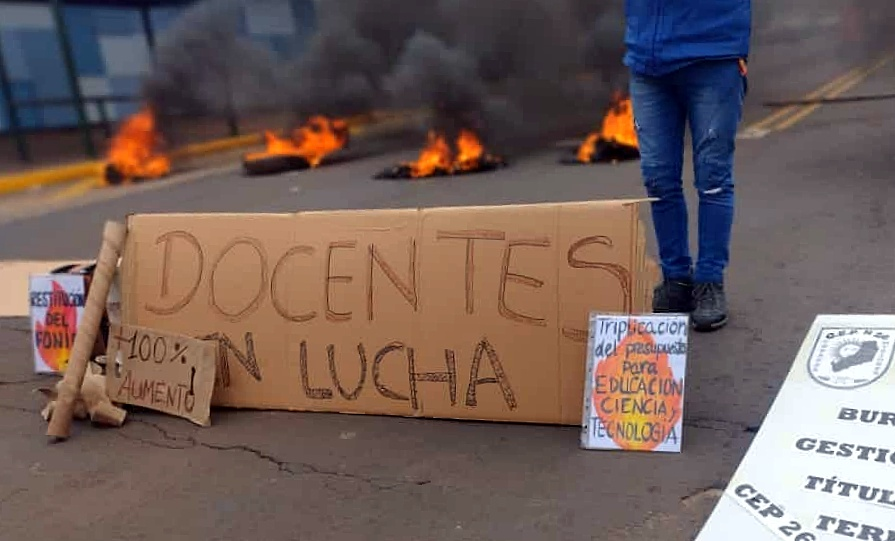 DOCENTES
EN LUCHA
RESTITUCIÓN
DEL
FONID
100%
AUMENTO!
Triplicación
del presupuesto
para
EDUCACIÓN
CIENCIA y
TECNOLOGIA
CEP N
BUR
GESTIO
TÍTUL
TER
CEP 26